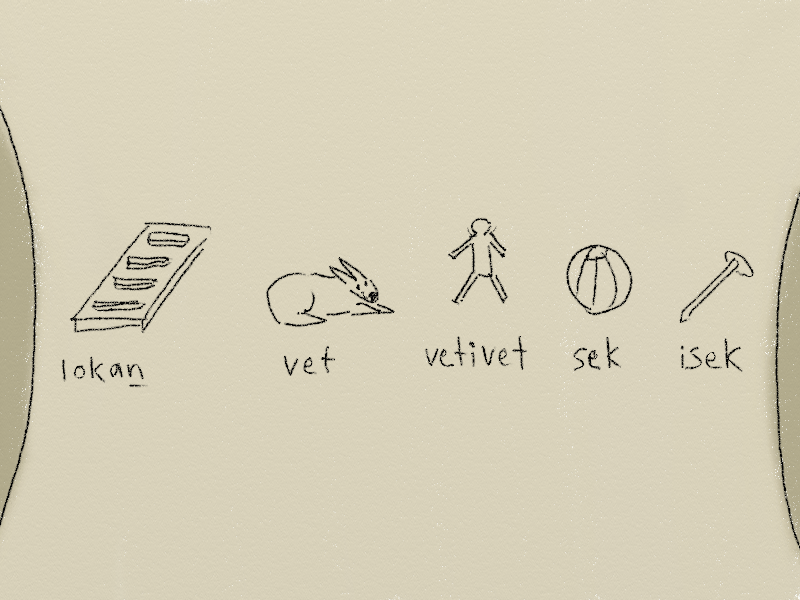 lokaṉ
vet
vetivet
sek
isek